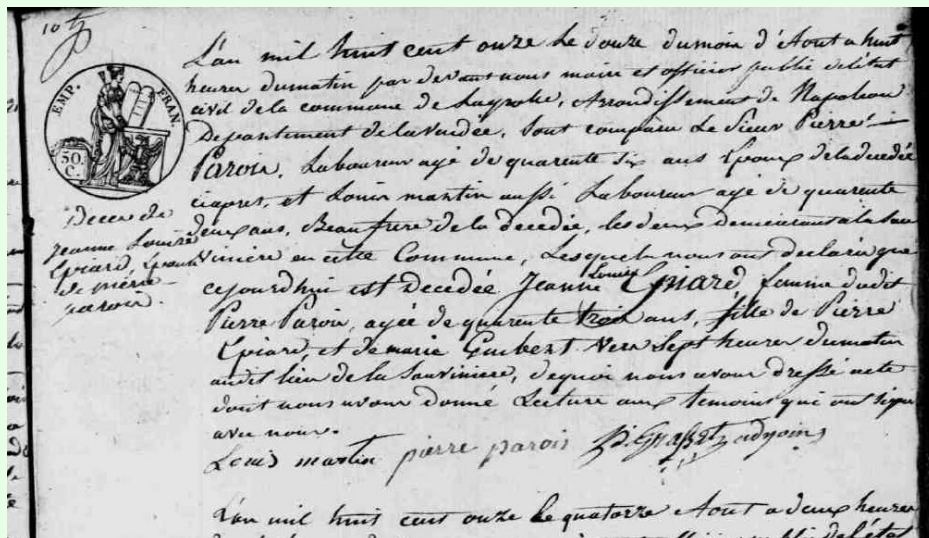 EMP. FRAN.
50.
C.
Décès de
Jeanne Louise
Epiard, Epouse
de pierre
parois.
L'an mil huit cent onze Le douze du mois d'Aout a huit
heures du matin par devant nous maire et officier public de l'état
civil de la commune de Arrondissement de Napoléon
Departement de la vendée, Sont comparu Le Sieur Pierre
Parois, Laboureur agé de quarente six ans Epoux de la decedée
ciapres, et Louis martin aussi Laboureur agé de quarente
deux ans, Beaufrere de la decedée, les deux demeurants a la Sau
viniere en cette Commune, Lesquels nous ont declaré que
cejourdhui est decedée Jeanne Louise Epiard, femme dudit
Pierre Parois, agée de quarente trois ans, fille de Pierre
Epiard, et de marie Guibert vers Sept heures du matin
audit lieu de la Sauviniere, dequoi nous avons dressé acte
dont nous avons donné Lecture aux temoins qui ont signé
avec nous.
Louis martin pierre parois adjoint
L'an mil huit cent onze le quatorze Aout a deux heures